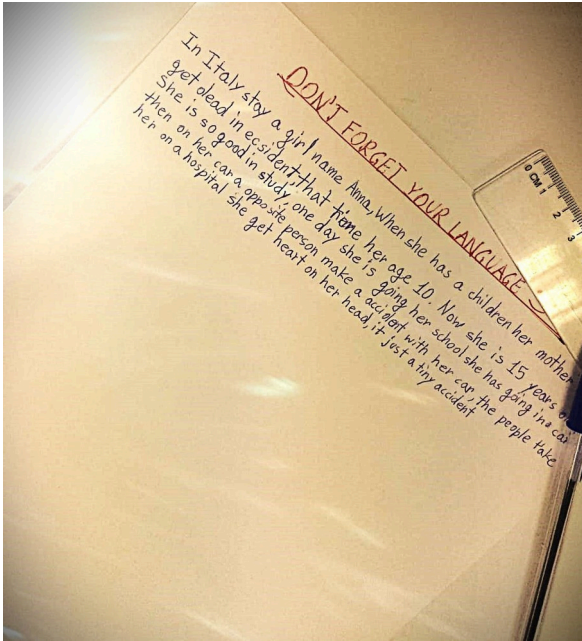 DON'T FORGET YOUR LANGUAGE
In Italy stay a girl name Anna, When she has a children her mother
get dead in ecsident, that time her age 10. Now she is 15 years
She is so good in study, one day she is going her school she has going in a car
then on her car a opposite person make a accident with her car, the people take
her on a hospital she get heart on her head, it just a tiny accident
0 CM 1 2 3